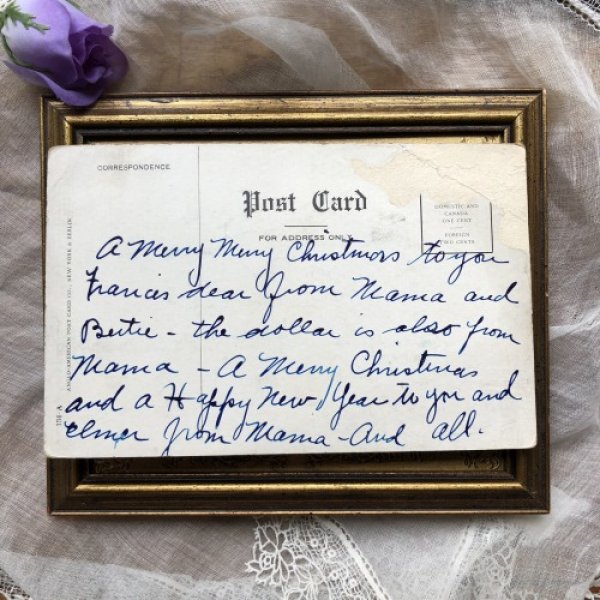 CORRESPONDENCE
Post Card
FOR ADDRESS ONLY
DOMESTIC AND
CANADA
ONE CENT
FOREIGN
TWO CENTS
A Merry Merry Christmas to you
Francis dear from Mama and
Bertie - the dollar is also from
Mama - A Merry Christmas
and a Happy New Year to you and
Elmer from Mama - And all.
ANGLO-AMERICAN POST CARD CO., NEW YORK & BERLIN.